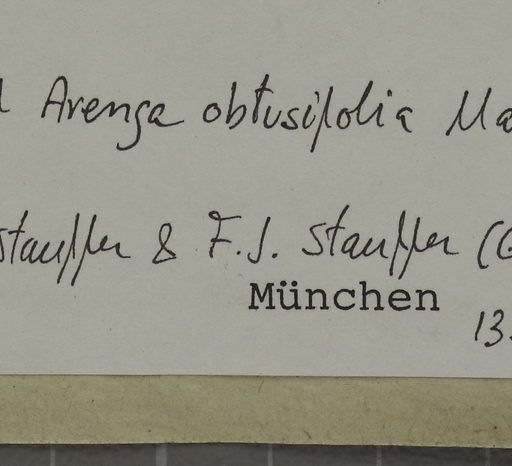 Arenga obtusifolia Ma
Stauffer & F.J. Stauffer (G
München
13.